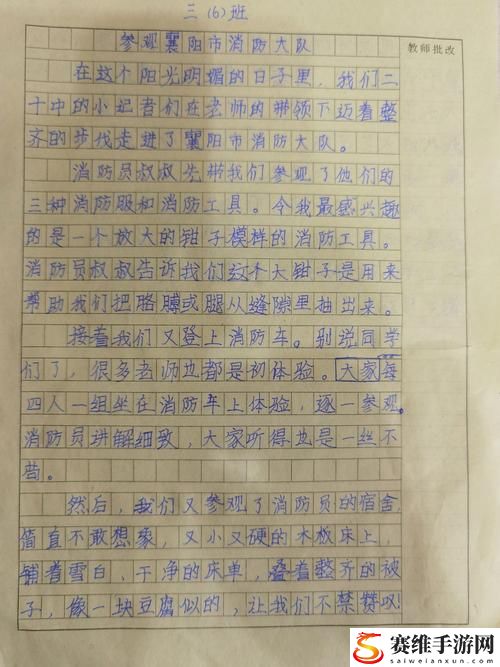 三(6)班
参观襄阳市消防大队
教师批改
在这个阳光明媚的日子里，我们二
十中的小记者们在老师的带领下迈着整
齐的步伐走进了襄阳市消防大队。
消防员叔叔先带我们参观了他们的
三种消防服和消防工具。令我最感兴趣
的是一个放大的钳子模样的消防工具。
消防员叔叔告诉我们这个大钳子是用来
帮助我们把胳膊或腿从缝隙里抽出来。
接着我们又登上消防车。别说同学
们了，很多老师也都是初体验。大家每
四人一组坐在消防车上体验，逐一参观。
消防员讲解细致，大家听得也是一丝不
苟。
然后，我们又参观了消防员的宿舍，
简直不敢想象，又小又硬的木板床上，
铺着雪白、干净的床单，叠着整齐的被
子，像一块豆腐似的，让我们不禁赞叹！
赛维手游网
www.saiweilanxun.com